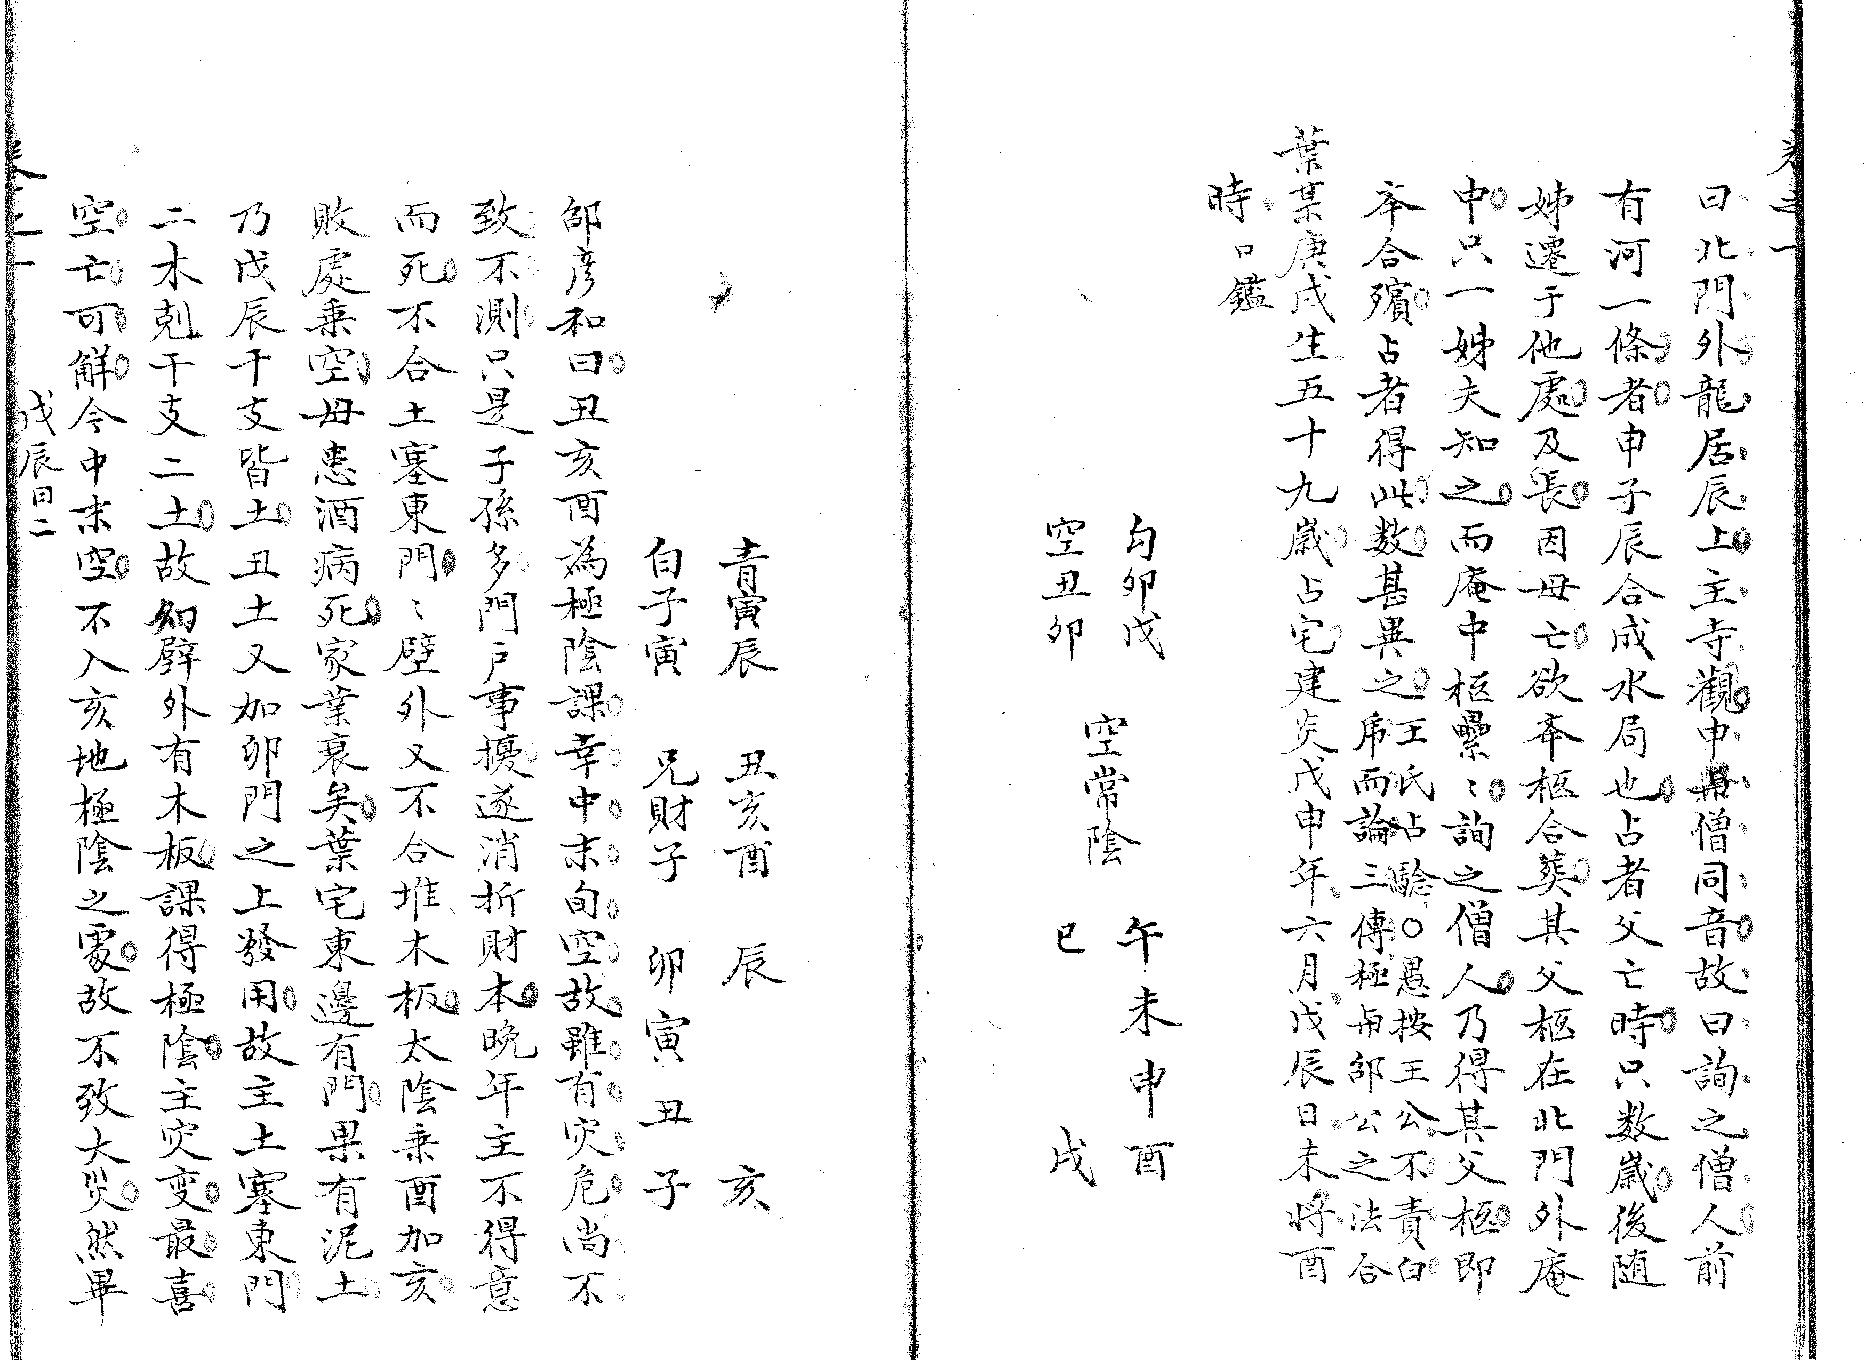 曰北門外龍居辰上主寺觀申與僧同音故曰詢之僧人前
有河一條者申子辰合成水局也占者父亡時只数歲後随
姊遷于他處及長因母亡欲奔柩合葬其父柩在北門外庵
中只一姊夫知之而庵中柩纍〻詢之僧人乃得其父柩即
奔合殯占者得此数甚異之王氏占驗○愚按王公不責白
虎而論三傳極與邵公之法合
葉某庚戌生五十九歲占宅建炎戊申年六月戊辰日未將酉
時 口鑑
勾卯戊 空常陰 午未申酉
空丑卯 巳 戌
青寅辰 丑亥酉 辰 亥
白子寅 兄財子 卯寅丑子
邵彦和曰丑亥酉為極陰課幸中末旬空故雖有灾危尚不
致不測只是子孫多門戸事擾遂消折財本晚年主不得意
而死不合土塞東門〻壁外又不合堆木板太陰乘酉加亥
敗處乗空母患酒病死家業衰矣葉宅東邊有門果有泥土
乃戊辰干支皆土丑土又加卯門之上發用故主土塞東門
二木剋干支二土故知壁外有木板課得極陰主灾变最喜
空亡可解今中末空不入亥地極陰之處故不致大災然畢
卷之一
戊辰日二